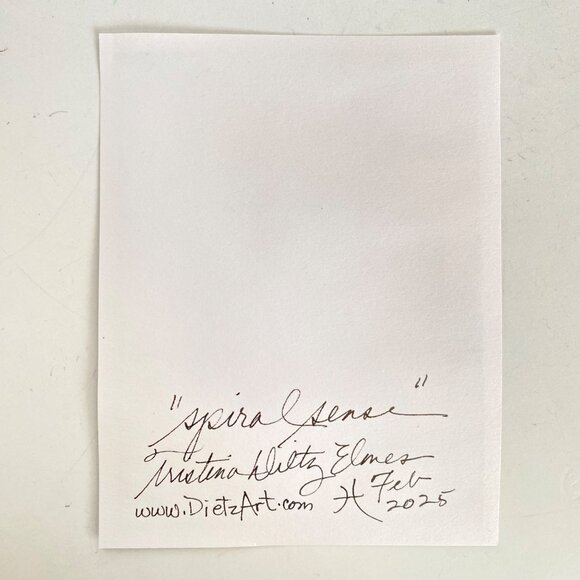 "spiral sense"
Tristina Dietz Elmes
www.DietzArt.com ♓ Feb 2025